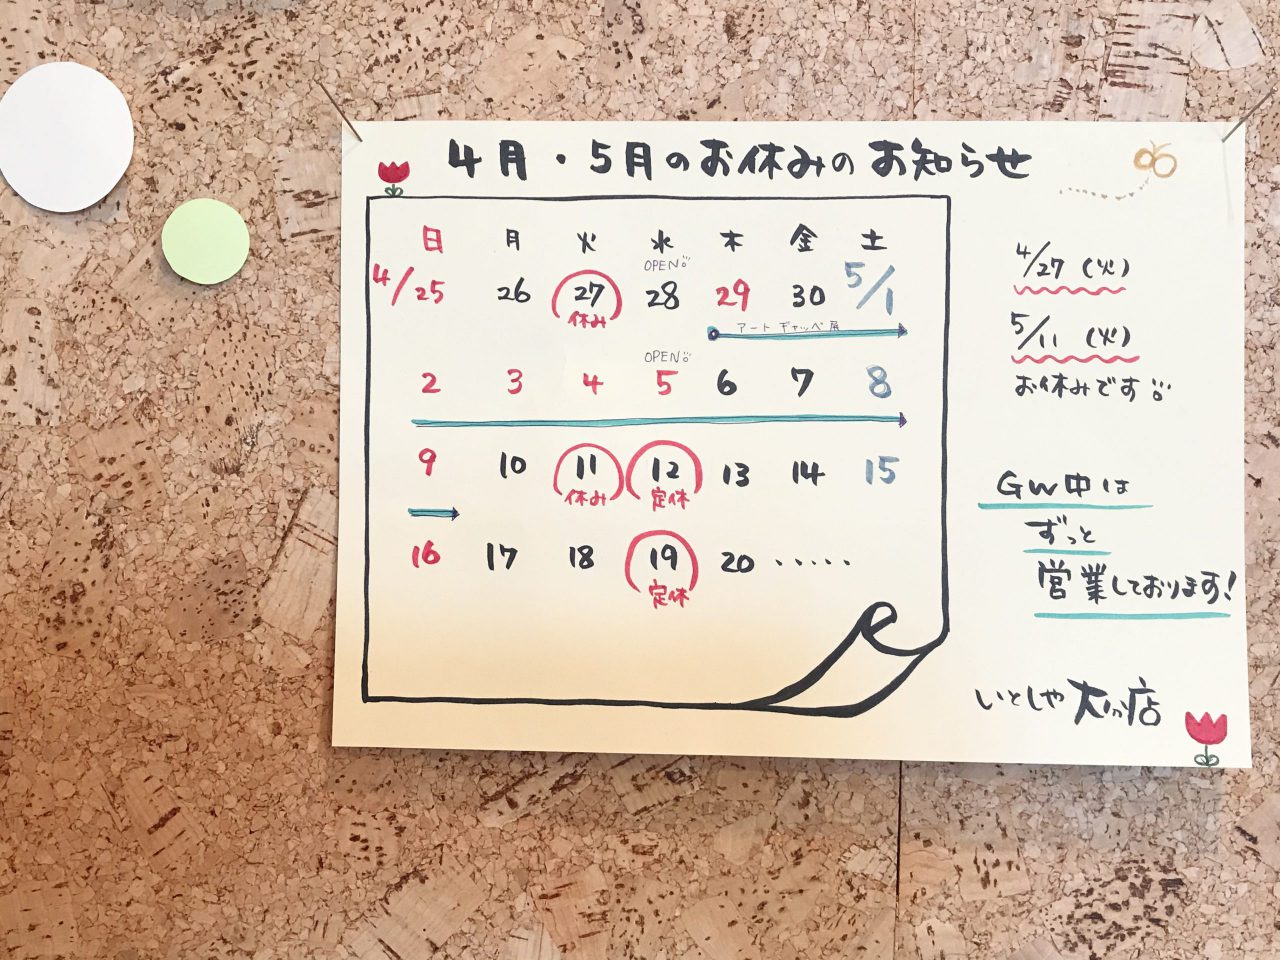 4月・5月のお休みのお知らせ
日 月 火 水 木 金 土
OPEN
4/25 26 27 28 29 30 5/1
休み
アート ギャッベ展
OPEN
2 3 4 5 6 7 8
9 10 11 12 13 14 15
休み 定休
16 17 18 19 20 ・・・・・
定休
4/27 (火)
5/11 (火)
お休みです
GW中は
ずっと
営業しております!
いとしや